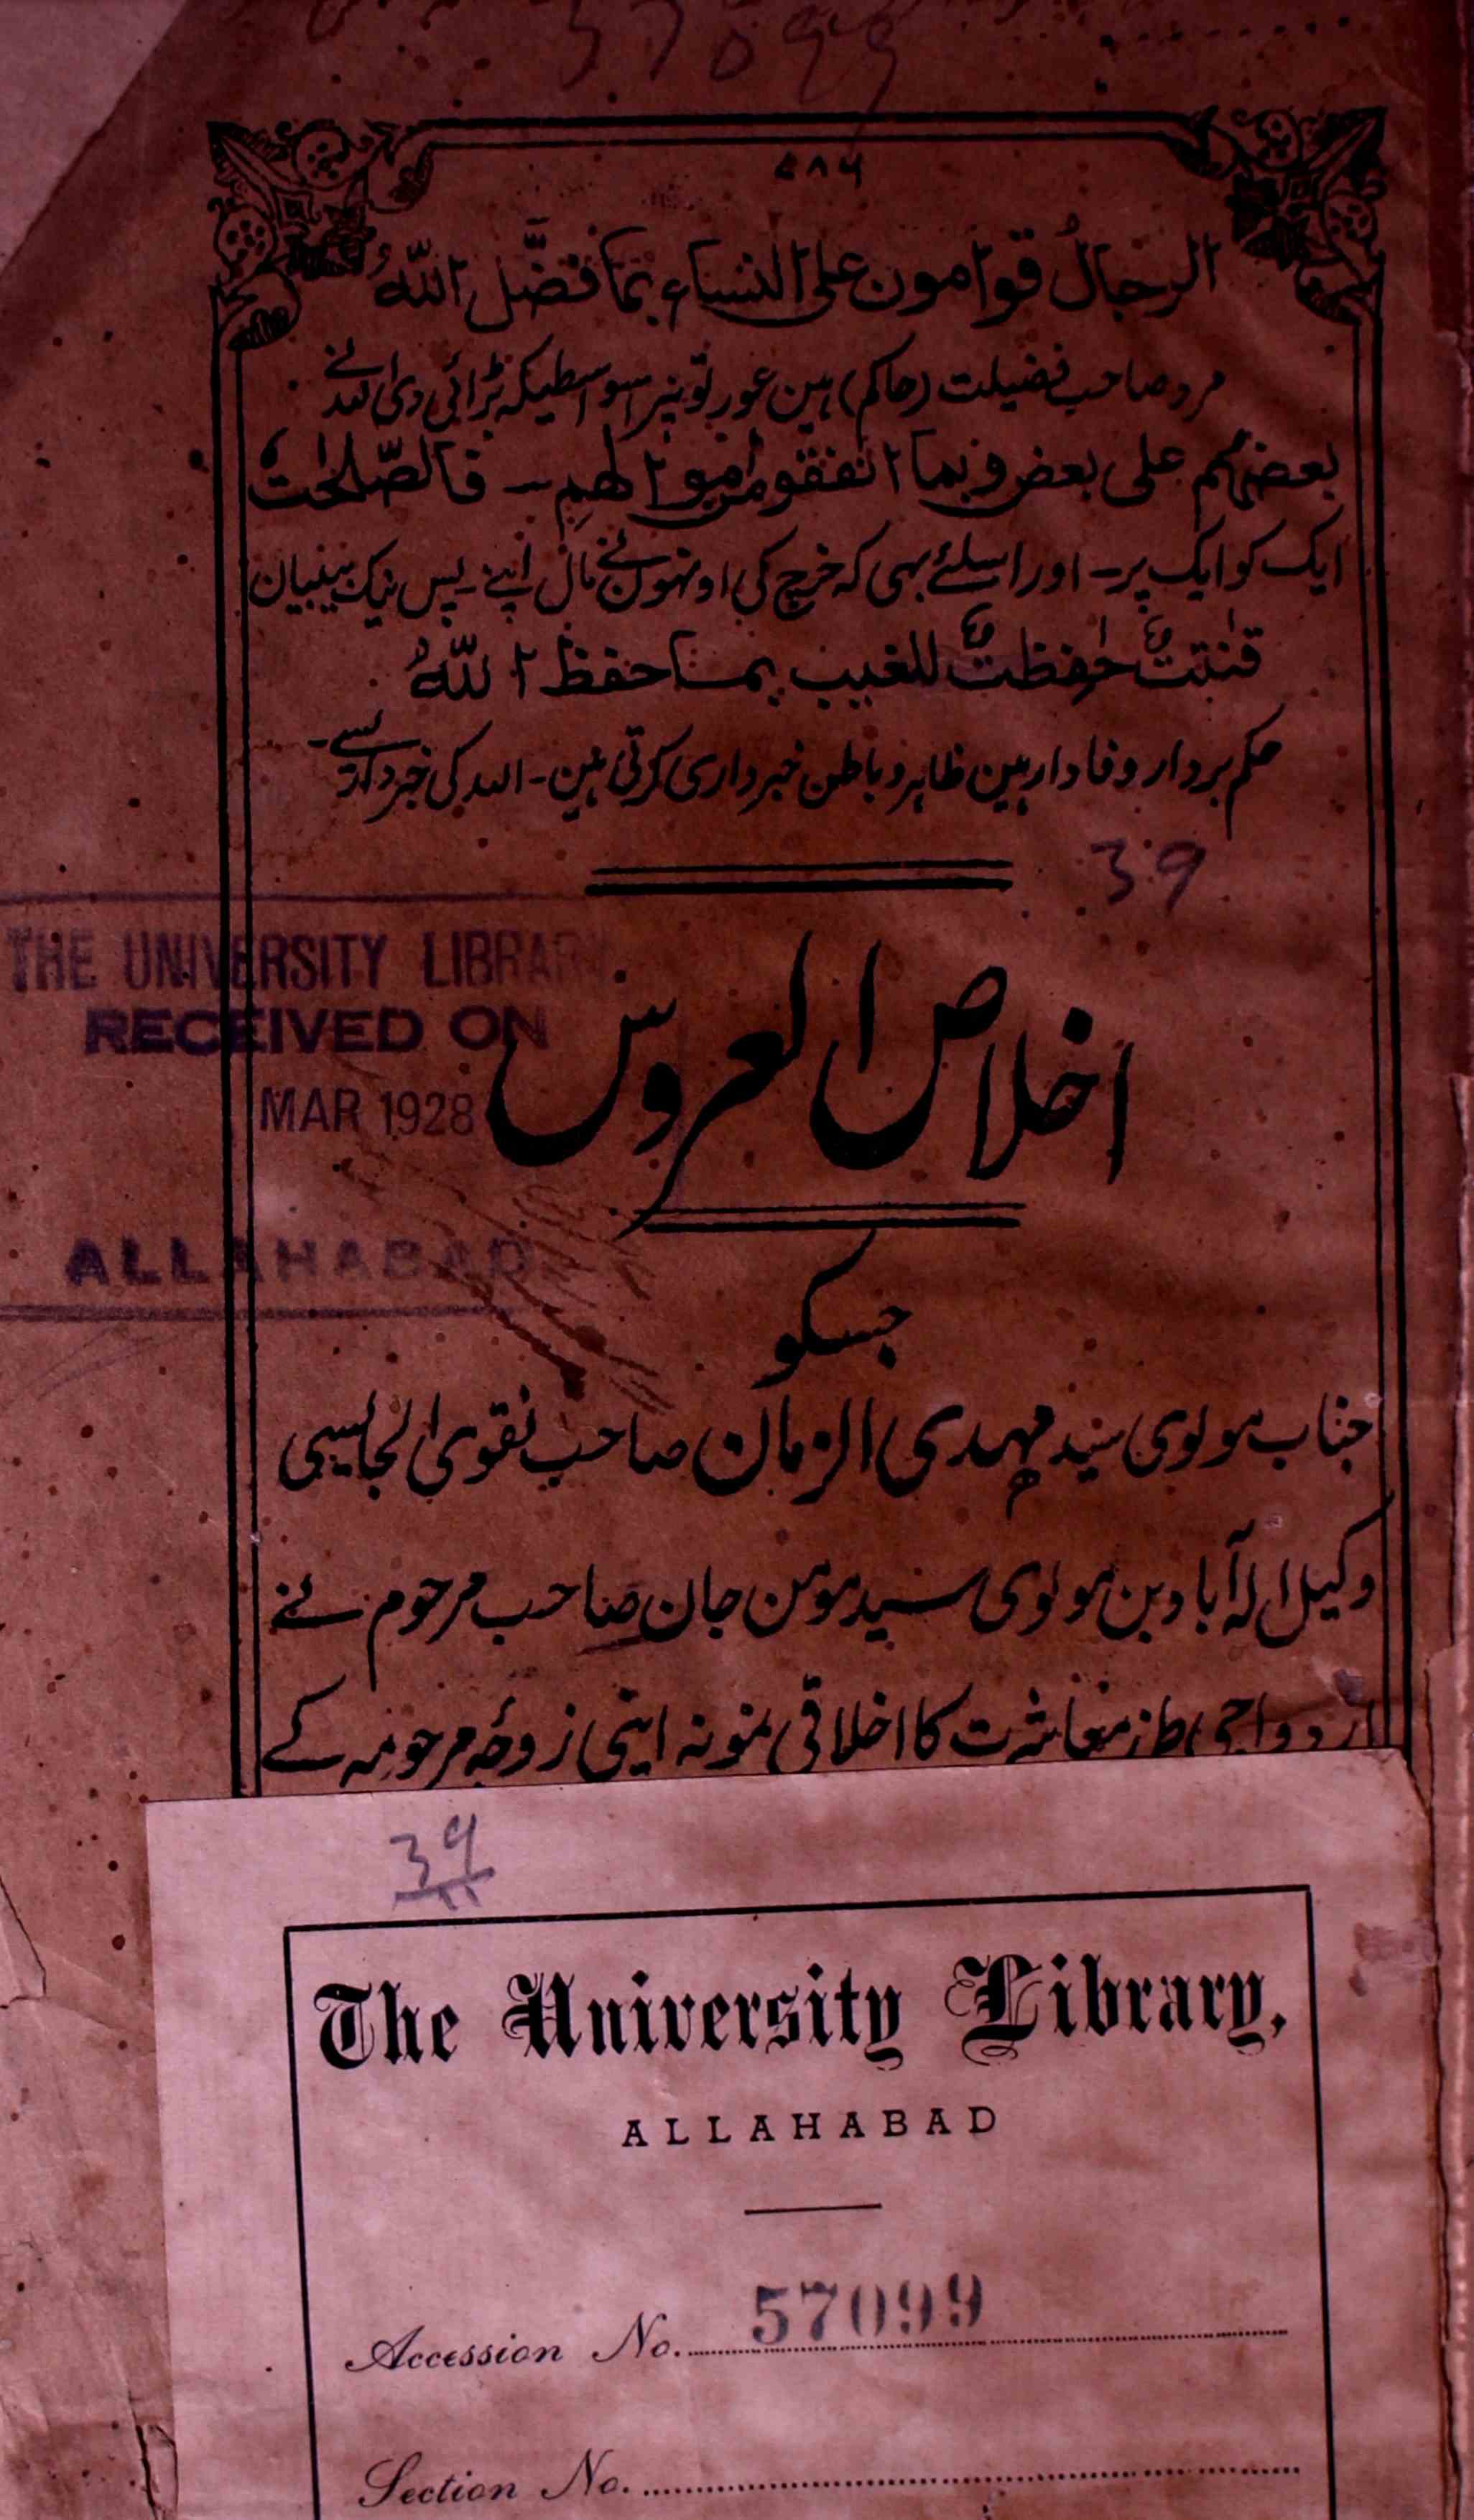 57099
۷۸۶
الرجالُ قوامون علی النساء بما فضَّل اللّٰہُ
مرد صاحب فضیلت (حاکم) ہین عورتونپر اسواسطیکہ بڑائی دی اللہ نے
بعضہم علی بعض و بما انفقو من اموالہم ۔ فالصّٰلحٰت
ایک کو ایک پر۔ اور اسلئے بہی کہ خرچ کی اونہون نے مال اپنے۔ پس نیک بیبیان
قٰنتٰتٌ حٰفظٰتٌ للغیب بما حفظ اللّٰہُ
حکم بردار وفادار ہین ظاہر و باطن خبرداری کرتی ہین۔ اللہ کی خبرداری سے۔
39
اخلاص العروس
THE UNIVERSITY LIBRARY
RECEIVED ON
MAR 1928
ALLAHABAD
جسکو
جناب مولوی سید مہدی الزمان صاحب نقوی الجایسی
وکیل الہ آباد بن مولوی سید مومن جان صاحب مرحوم نے
ازدواجی طرز معاشرت کا اخلاقی نمونہ اپنی زوجۂ مرحومہ کے
39
The University Library,
ALLAHABAD
Accession No. 57099
Section No.